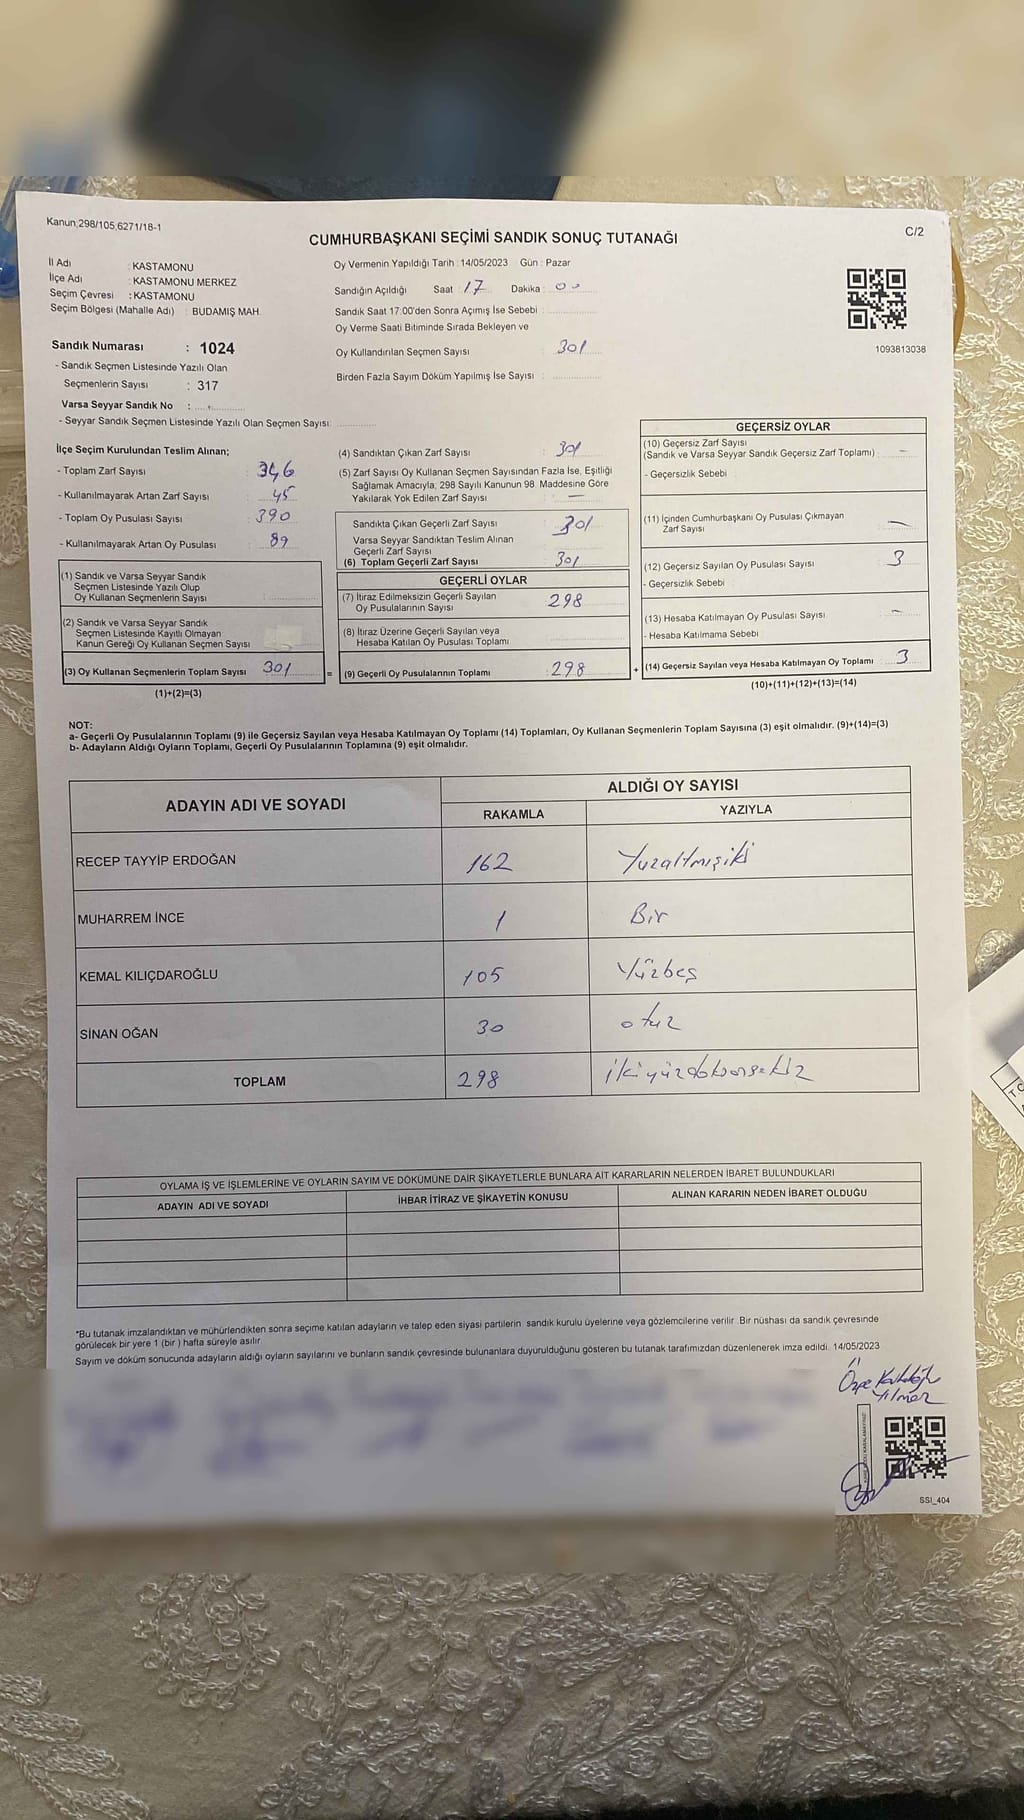 Kanun;298/105,6271/18-1
C/2
CUMHURBAŞKANI SEÇİMİ SANDIK SONUÇ TUTANAĞI
İl Adı : KASTAMONU
İlçe Adı : KASTAMONU MERKEZ
Seçim Çevresi : KASTAMONU
Seçim Bölgesi (Mahalle Adı) : BUDAMIŞ MAH.
Sandık Numarası : 1024
- Sandık Seçmen Listesinde Yazılı Olan
Seçmenlerin Sayısı : 317
Varsa Seyyar Sandık No :
- Seyyar Sandık Seçmen Listesinde Yazılı Olan Seçmen Sayısı:
Oy Vermenin Yapıldığı Tarih : 14/05/2023 Gün : Pazar
Sandığın Açıldığı Saat : 17 Dakika : 00
Sandık Saat 17:00'den Sonra Açımış İse Sebebi :
Oy Verme Saati Bitiminde Sırada Bekleyen ve
Oy Kullandırılan Seçmen Sayısı : 301
Birden Fazla Sayım Döküm Yapılmış İse Sayısı :
1093813038
İlçe Seçim Kurulundan Teslim Alınan;
- Toplam Zarf Sayısı : 346
- Kullanılmayarak Artan Zarf Sayısı : 45
- Toplam Oy Pusulası Sayısı : 390
- Kullanılmayarak Artan Oy Pusulası : 89
(1) Sandık ve Varsa Seyyar Sandık
Seçmen Listesinde Yazılı Olup
Oy Kullanan Seçmenlerin Sayısı :
(2) Sandık ve Varsa Seyyar Sandık
Seçmen Listesinde Kayıtlı Olmayan
Kanun Gereği Oy Kullanan Seçmen Sayısı :
(3) Oy Kullanan Seçmenlerin Toplam Sayısı 301 =
(1)+(2)=(3)
(4) Sandıktan Çıkan Zarf Sayısı : 301
(5) Zarf Sayısı Oy Kullanan Seçmen Sayısından Fazla İse, Eşitliği
Sağlamak Amacıyla; 298 Sayılı Kanunun 98. Maddesine Göre
Yakılarak Yok Edilen Zarf Sayısı : —
Sandıkta Çıkan Geçerli Zarf Sayısı : 301
Varsa Seyyar Sandıktan Teslim Alınan
Geçerli Zarf Sayısı :
(6) Toplam Geçerli Zarf Sayısı : 301
GEÇERLİ OYLAR
(7) İtiraz Edilmeksizin Geçerli Sayılan
Oy Pusulalarının Sayısı : 298
(8) İtiraz Üzerine Geçerli Sayılan veya
Hesaba Katılan Oy Pusulası Toplamı :
(9) Geçerli Oy Pusulalarının Toplamı : 298 +
GEÇERSİZ OYLAR
(10) Geçersiz Zarf Sayısı
(Sandık ve Varsa Seyyar Sandık Geçersiz Zarf Toplamı) : —
- Geçersizlik Sebebi :
(11) İçinden Cumhurbaşkanı Oy Pusulası Çıkmayan
Zarf Sayısı : —
(12) Geçersiz Sayılan Oy Pusulası Sayısı : 3
- Geçersizlik Sebebi :
(13) Hesaba Katılmayan Oy Pusulası Sayısı : —
- Hesaba Katılmama Sebebi :
(14) Geçersiz Sayılan veya Hesaba Katılmayan Oy Toplamı : 3
(10)+(11)+(12)+(13)=(14)
NOT:
a- Geçerli Oy Pusulalarının Toplamı (9) ile Geçersiz Sayılan veya Hesaba Katılmayan Oy Toplamı (14) Toplamları, Oy Kullanan Seçmenlerin Toplam Sayısına (3) eşit olmalıdır. (9)+(14)=(3)
b- Adayların Aldığı Oyların Toplamı, Geçerli Oy Pusulalarının Toplamına (9) eşit olmalıdır.
ADAYIN ADI VE SOYADI
ALDIĞI OY SAYISI
RAKAMLA YAZIYLA
RECEP TAYYİP ERDOĞAN 162 Yüzaltmışiki
MUHARREM İNCE 1 Bir
KEMAL KILIÇDAROĞLU 105 Yüzbeş
SİNAN OĞAN 30 otuz
TOPLAM 298 ikiyüzdoksansekiz
OYLAMA İŞ VE İŞLEMLERİNE VE OYLARIN SAYIM VE DÖKÜMÜNE DAİR ŞİKAYETLERLE BUNLARA AİT KARARLARIN NELERDEN İBARET BULUNDUKLARI
ADAYIN ADI VE SOYADI İHBAR İTİRAZ VE ŞİKAYETİN KONUSU ALINAN KARARIN NEDEN İBARET OLDUĞU
*Bu tutanak imzalandıktan ve mühürlendikten sonra seçime katılan adayların ve talep eden siyasi partilerin sandık kurulu üyelerine veya gözlemcilerine verilir. Bir nüshası da sandık çevresinde
görülecek bir yere 1 (bir) hafta süreyle asılır.
Sayım ve döküm sonucunda adayların aldığı oyların sayılarını ve bunların sandık çevresinde bulunanlara duyurulduğunu gösteren bu tutanak tarafımızdan düzenlenerek imza edildi. 14/05/2023
Yılmaz
SSI_404